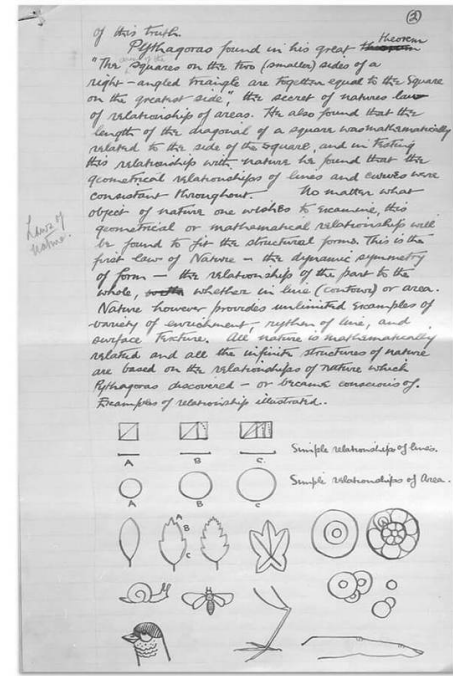 ②
of this truth.
Pythagoras found in his great theorem
"The squares on the two (smaller) sides of a
right-angled triangle are together equal to the square
on the greatest side", the secret of natures law
of relationship of areas. He also found that the
length of the diagonal of a square was mathematically
related to the side of the square, and in testing
this relationship with nature he found that the
geometrical relationships of lines and curves were
consistent throughout. No matter what
object of nature one wishes to examine, this
geometrical or mathematical relationship will
be found to fit the structural forms. This is the
first law of Nature – the dynamic symmetry
of form – the relationship of the part to the
whole, whether in line (contour) or area.
Nature however provides unlimited examples of
variety of enrichment, rythem of line, and
surface texture. All nature is mathematically
related and all the infinite structures of nature
are based on the relationships of nature which
Pythagoras discovered – or became conscious of.
Examples of relationship illustrated.
Laws of
nature.
Simple relationships of lines.
A B C
Simple relationships of Area.
A B C
A
B
C